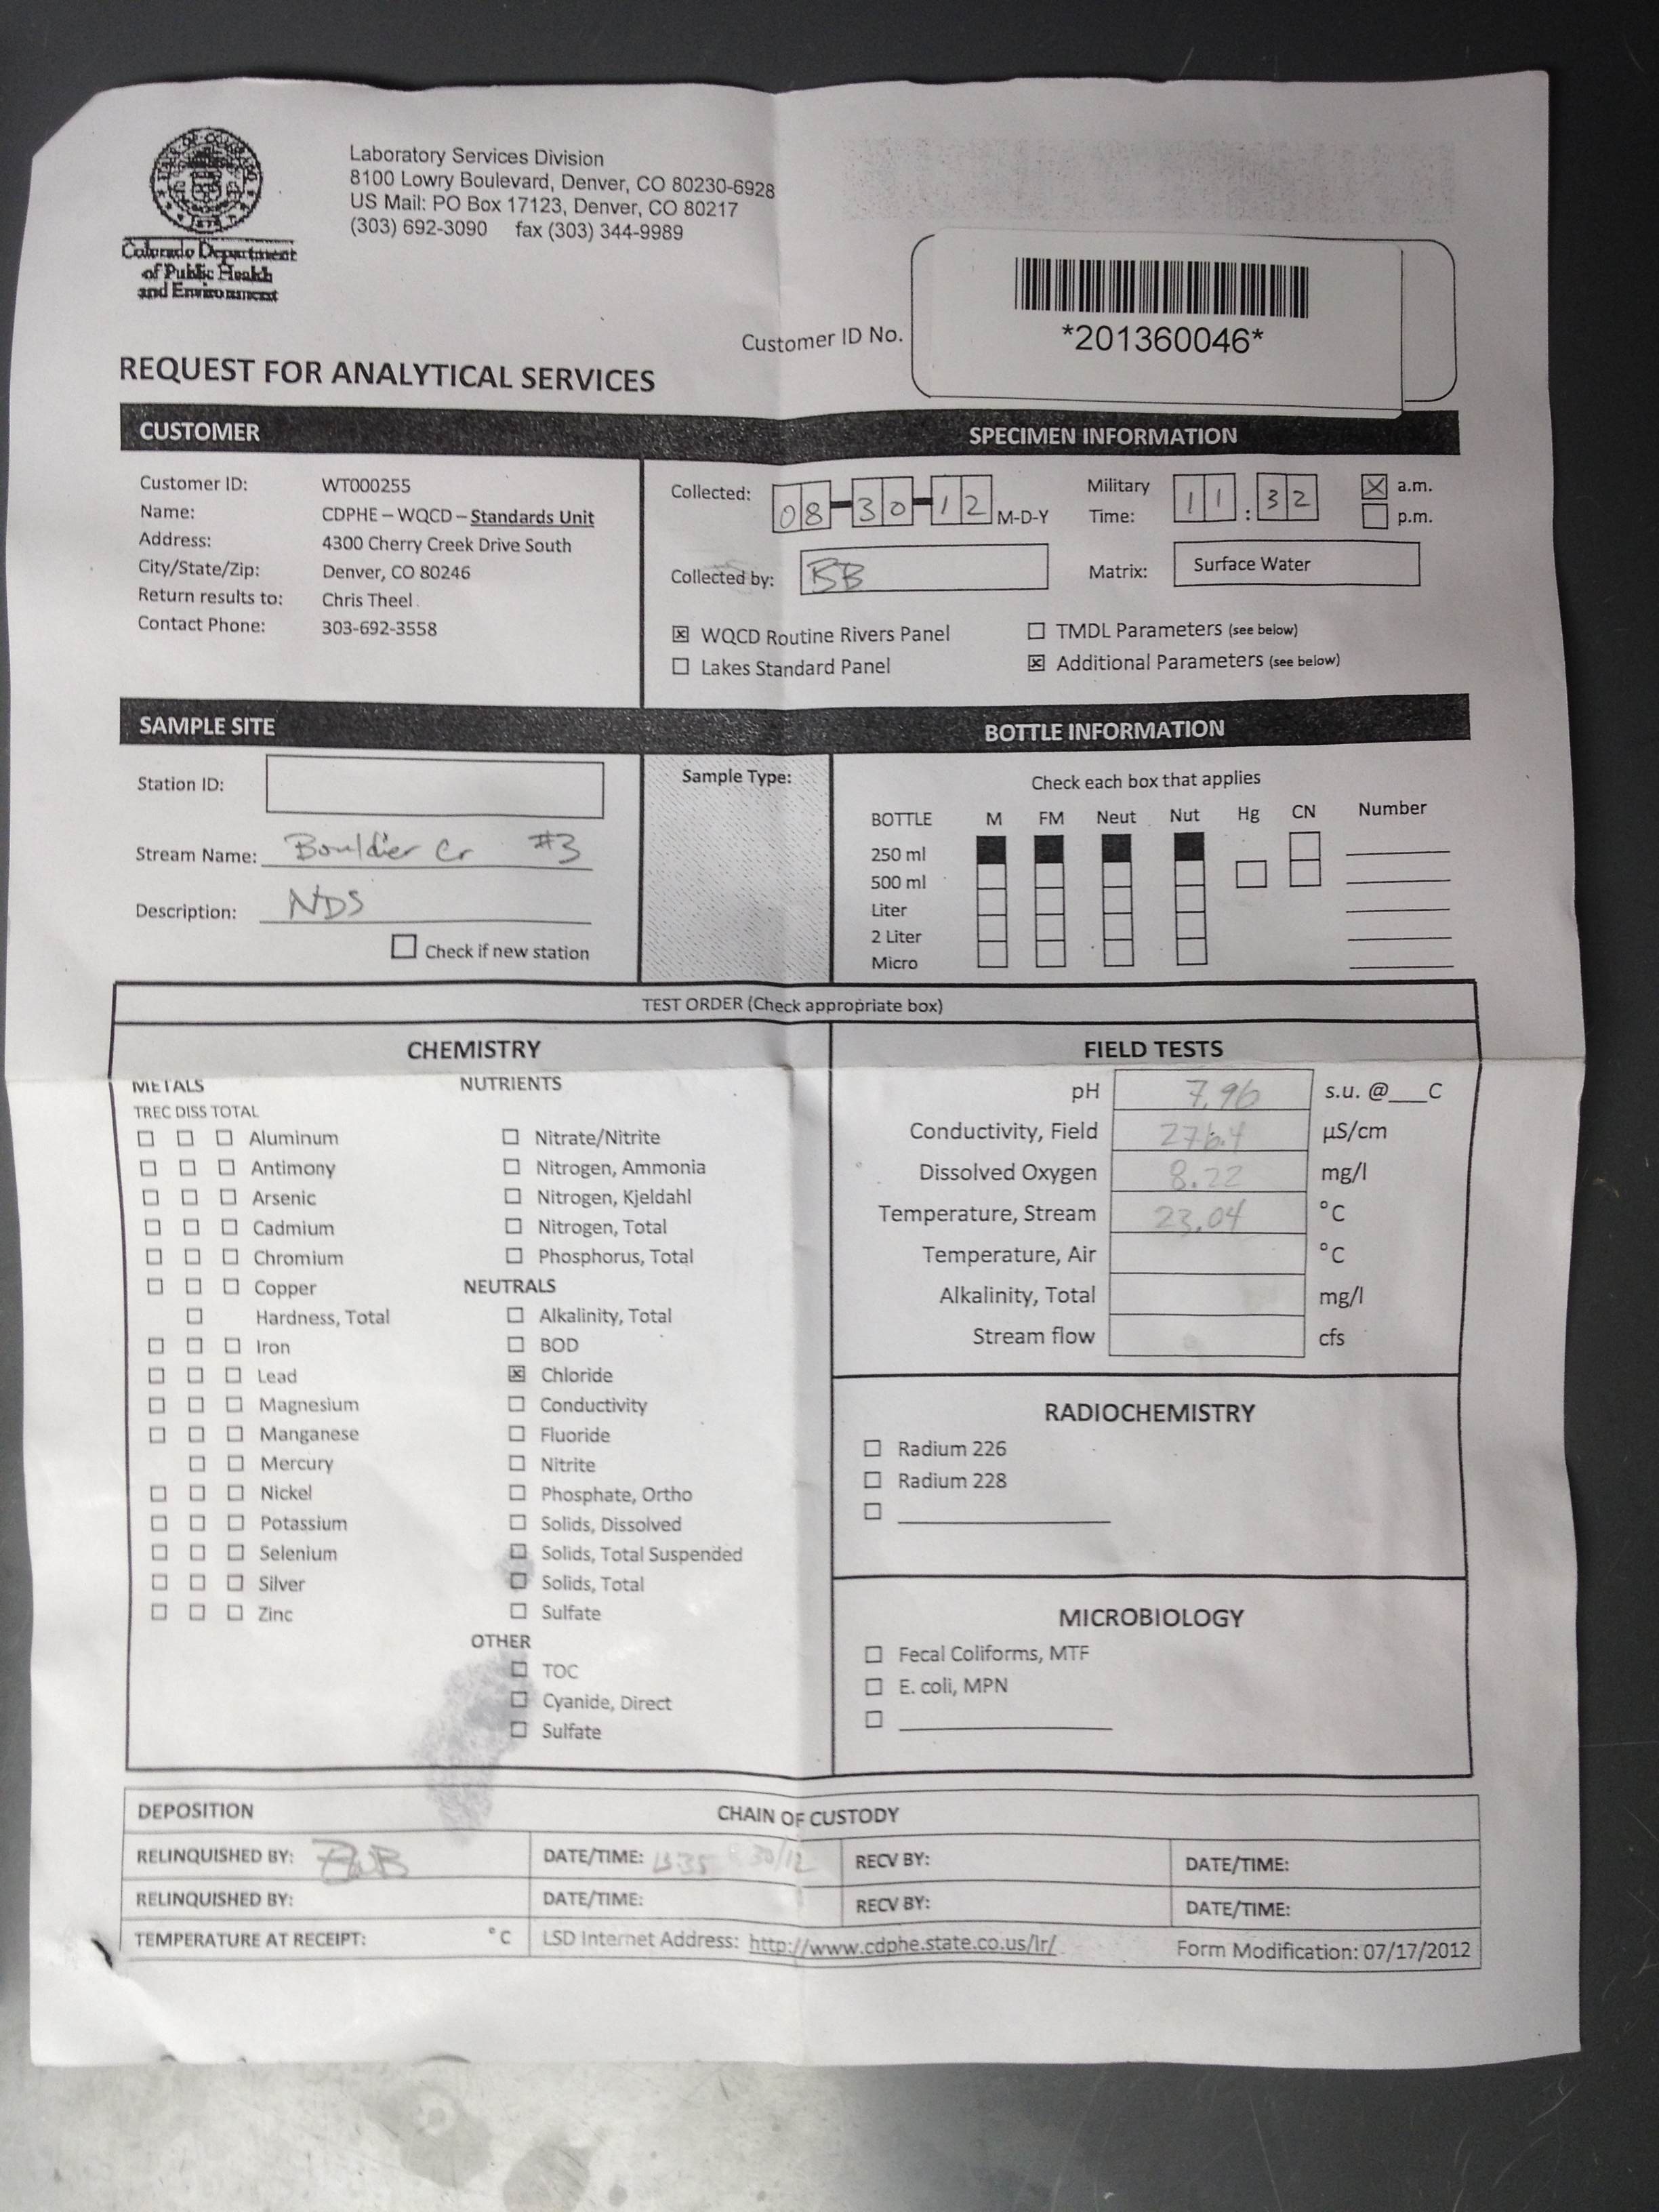 Laboratory Services Division
8100 Lowry Boulevard, Denver, CO 80230-6928
US Mail: PO Box 17123, Denver, CO 80217
(303) 692-3090 fax (303) 344-9989
Colorado Department
of Public Health
and Environment
Customer ID No.
*201360046*
REQUEST FOR ANALYTICAL SERVICES
CUSTOMER
Customer ID: WT000255
Name: CDPHE – WQCD – Standards Unit
Address: 4300 Cherry Creek Drive South
City/State/Zip: Denver, CO 80246
Return results to: Chris Theel
Contact Phone: 303-692-3558
SPECIMEN INFORMATION
Collected: 08-30-12 M-D-Y
Military Time: 11:32 a.m.
p.m.
Collected by: BB
Matrix: Surface Water
WQCD Routine Rivers Panel
TMDL Parameters (see below)
Lakes Standard Panel
Additional Parameters (see below)
SAMPLE SITE
Station ID:
Stream Name: Bouldier Cr #3
Description: NDS
Check if new station
Sample Type:
BOTTLE INFORMATION
Check each box that applies
BOTTLE M FM Neut Nut Hg CN Number
250 ml
500 ml
Liter
2 Liter
Micro
TEST ORDER (Check appropriate box)
CHEMISTRY
METALS
TREC DISS TOTAL
Aluminum
Antimony
Arsenic
Cadmium
Chromium
Copper
Hardness, Total
Iron
Lead
Magnesium
Manganese
Mercury
Nickel
Potassium
Selenium
Silver
Zinc
NUTRIENTS
Nitrate/Nitrite
Nitrogen, Ammonia
Nitrogen, Kjeldahl
Nitrogen, Total
Phosphorus, Total
NEUTRALS
Alkalinity, Total
BOD
Chloride
Conductivity
Fluoride
Nitrite
Phosphate, Ortho
Solids, Dissolved
Solids, Total Suspended
Solids, Total
Sulfate
OTHER
TOC
Cyanide, Direct
Sulfate
FIELD TESTS
pH 7.96 s.u. @___C
Conductivity, Field 276.4 µS/cm
Dissolved Oxygen 8.22 mg/l
Temperature, Stream 23.04 °C
Temperature, Air °C
Alkalinity, Total mg/l
Stream flow cfs
RADIOCHEMISTRY
Radium 226
Radium 228
MICROBIOLOGY
Fecal Coliforms, MTF
E. coli, MPN
DEPOSITION CHAIN OF CUSTODY
RELINQUISHED BY: DATE/TIME: 30/12 RECV BY: DATE/TIME:
RELINQUISHED BY: DATE/TIME: RECV BY: DATE/TIME:
TEMPERATURE AT RECEIPT: °C LSD Internet Address: http://www.cdphe.state.co.us/lr/ Form Modification: 07/17/2012